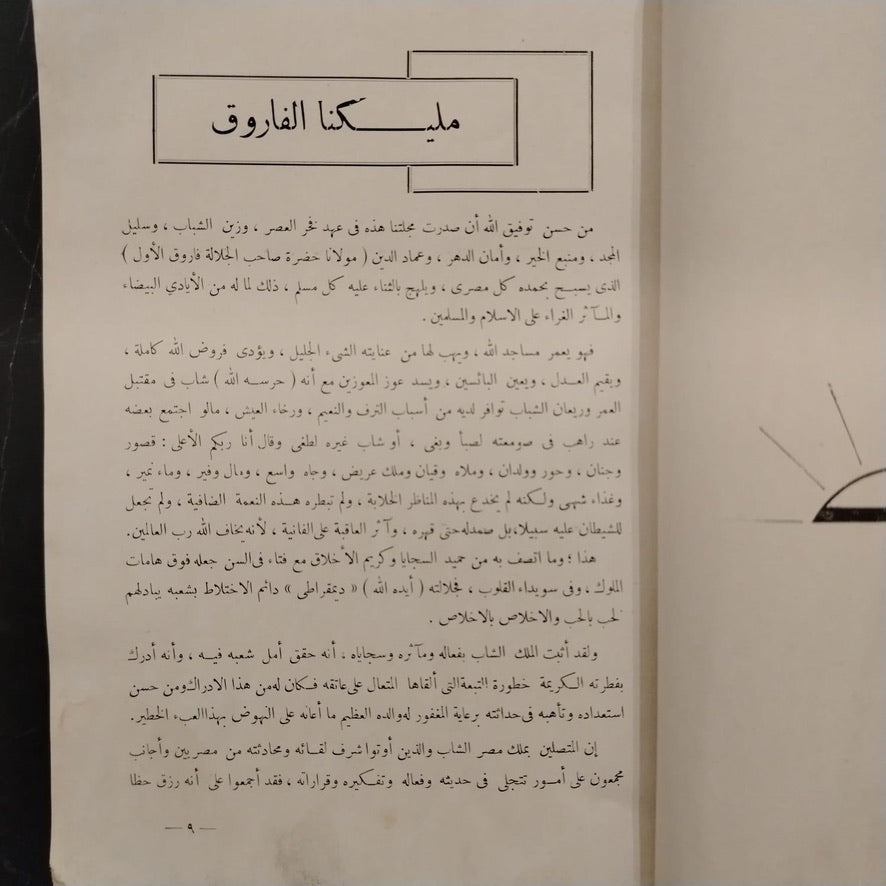 مليكنا الفاروق
من حسن توفيق الله أن صدرت مجلتنا هذه فى عهد فخر العصر ، وزين الشباب ، وسليل
المجد ، ومنبع الخير ، وأمان الدهر ، وعماد الدين ( مولانا حضرة صاحب الجلالة فاروق الأول )
الذى يسبح بحمده كل مصرى ، ويلهج بالثناء عليه كل مسلم ، ذلك لما له من الأيادي البيضاء
والمآثر الغراء على الاسلام والمسلمين .
فهو يعمر مساجد الله ، ويهب لها من عنايته الشىء الجليل ، ويؤدى فروض الله كاملة ،
ويقيم العدل ، ويعين البائسين ، ويسد عوز المعوزين مع أنه ( حرسه الله ) شاب فى مقتبل
العمر وريعان الشباب توافر لديه من أسباب الترف والنعيم ، ورخاء العيش ، مالو اجتمع بعضه
عند راهب فى صومعته لصبأ وبغى ، أو شاب غيره لطغى وقال أنا ربكم الأعلى : قصور
وجنان ، وحور وولدان ، وملاه وقيان وملك عريض ، وجاه واسع ، ومال وفير ، وماء نمير ،
وغذاء شهى ولكنه لم يخدع بهذه المناظر الخلابة ، ولم تبطره هذه النعمة الضافية ، ولم تجعل
للشيطان عليه سبيلا، بل صمد له حتى قهره ، وآثر العاقبة على الفانية ، لأنه يخاف الله رب العالمين.
هذا ؛ وما اتصف به من حميد السجايا وكريم الأخلاق مع فتاء فى السن جعله فوق هامات
الملوك ، وفى سويداء القلوب ، فجلالته ( أيده الله ) « ديمقراطى » دائم الاختلاط بشعبه يبادلهم
لحب بالحب والاخلاص بالاخلاص .
ولقد أثبت الملك الشاب بفعاله ومآثره وسجاياه ، أنه حقق أمل شعبه فيه ، وأنه أدرك
بفطرته الكريمة خطورة التبعة التى ألقاها المتعال على عاتقه فكان له من هذا الادراك ومن حسن
استعداده وتأهبه فى حداثته برعاية المغفور له والده العظيم ما أعانه على النهوض بهذا العبء الخطير.
إن المتصلين بملك مصر الشاب والذين أوتوا شرف لقائه ومحادثته من مصريين وأجانب
مجمعون على أمور تتجلى فى حديثه وفعاله وتفكيره وقراراته ، فقد أجمعوا على أنه رزق حظا
— ٩ —